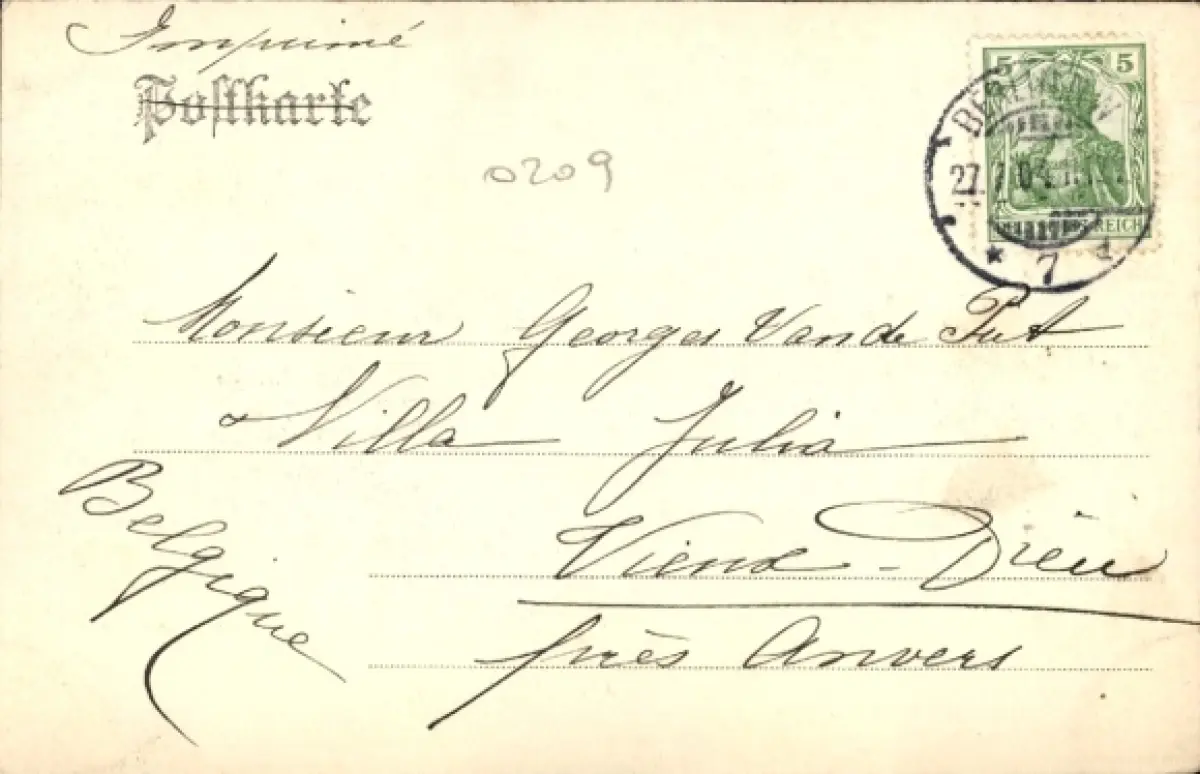 Imprimé
Postkarte
5 5
BERLIN W
27. 04
REICH
* 7 d
0209
Monsieur Georges Van de Put
Villa Julia
Vieux-Dieu
près Anvers
Belgique